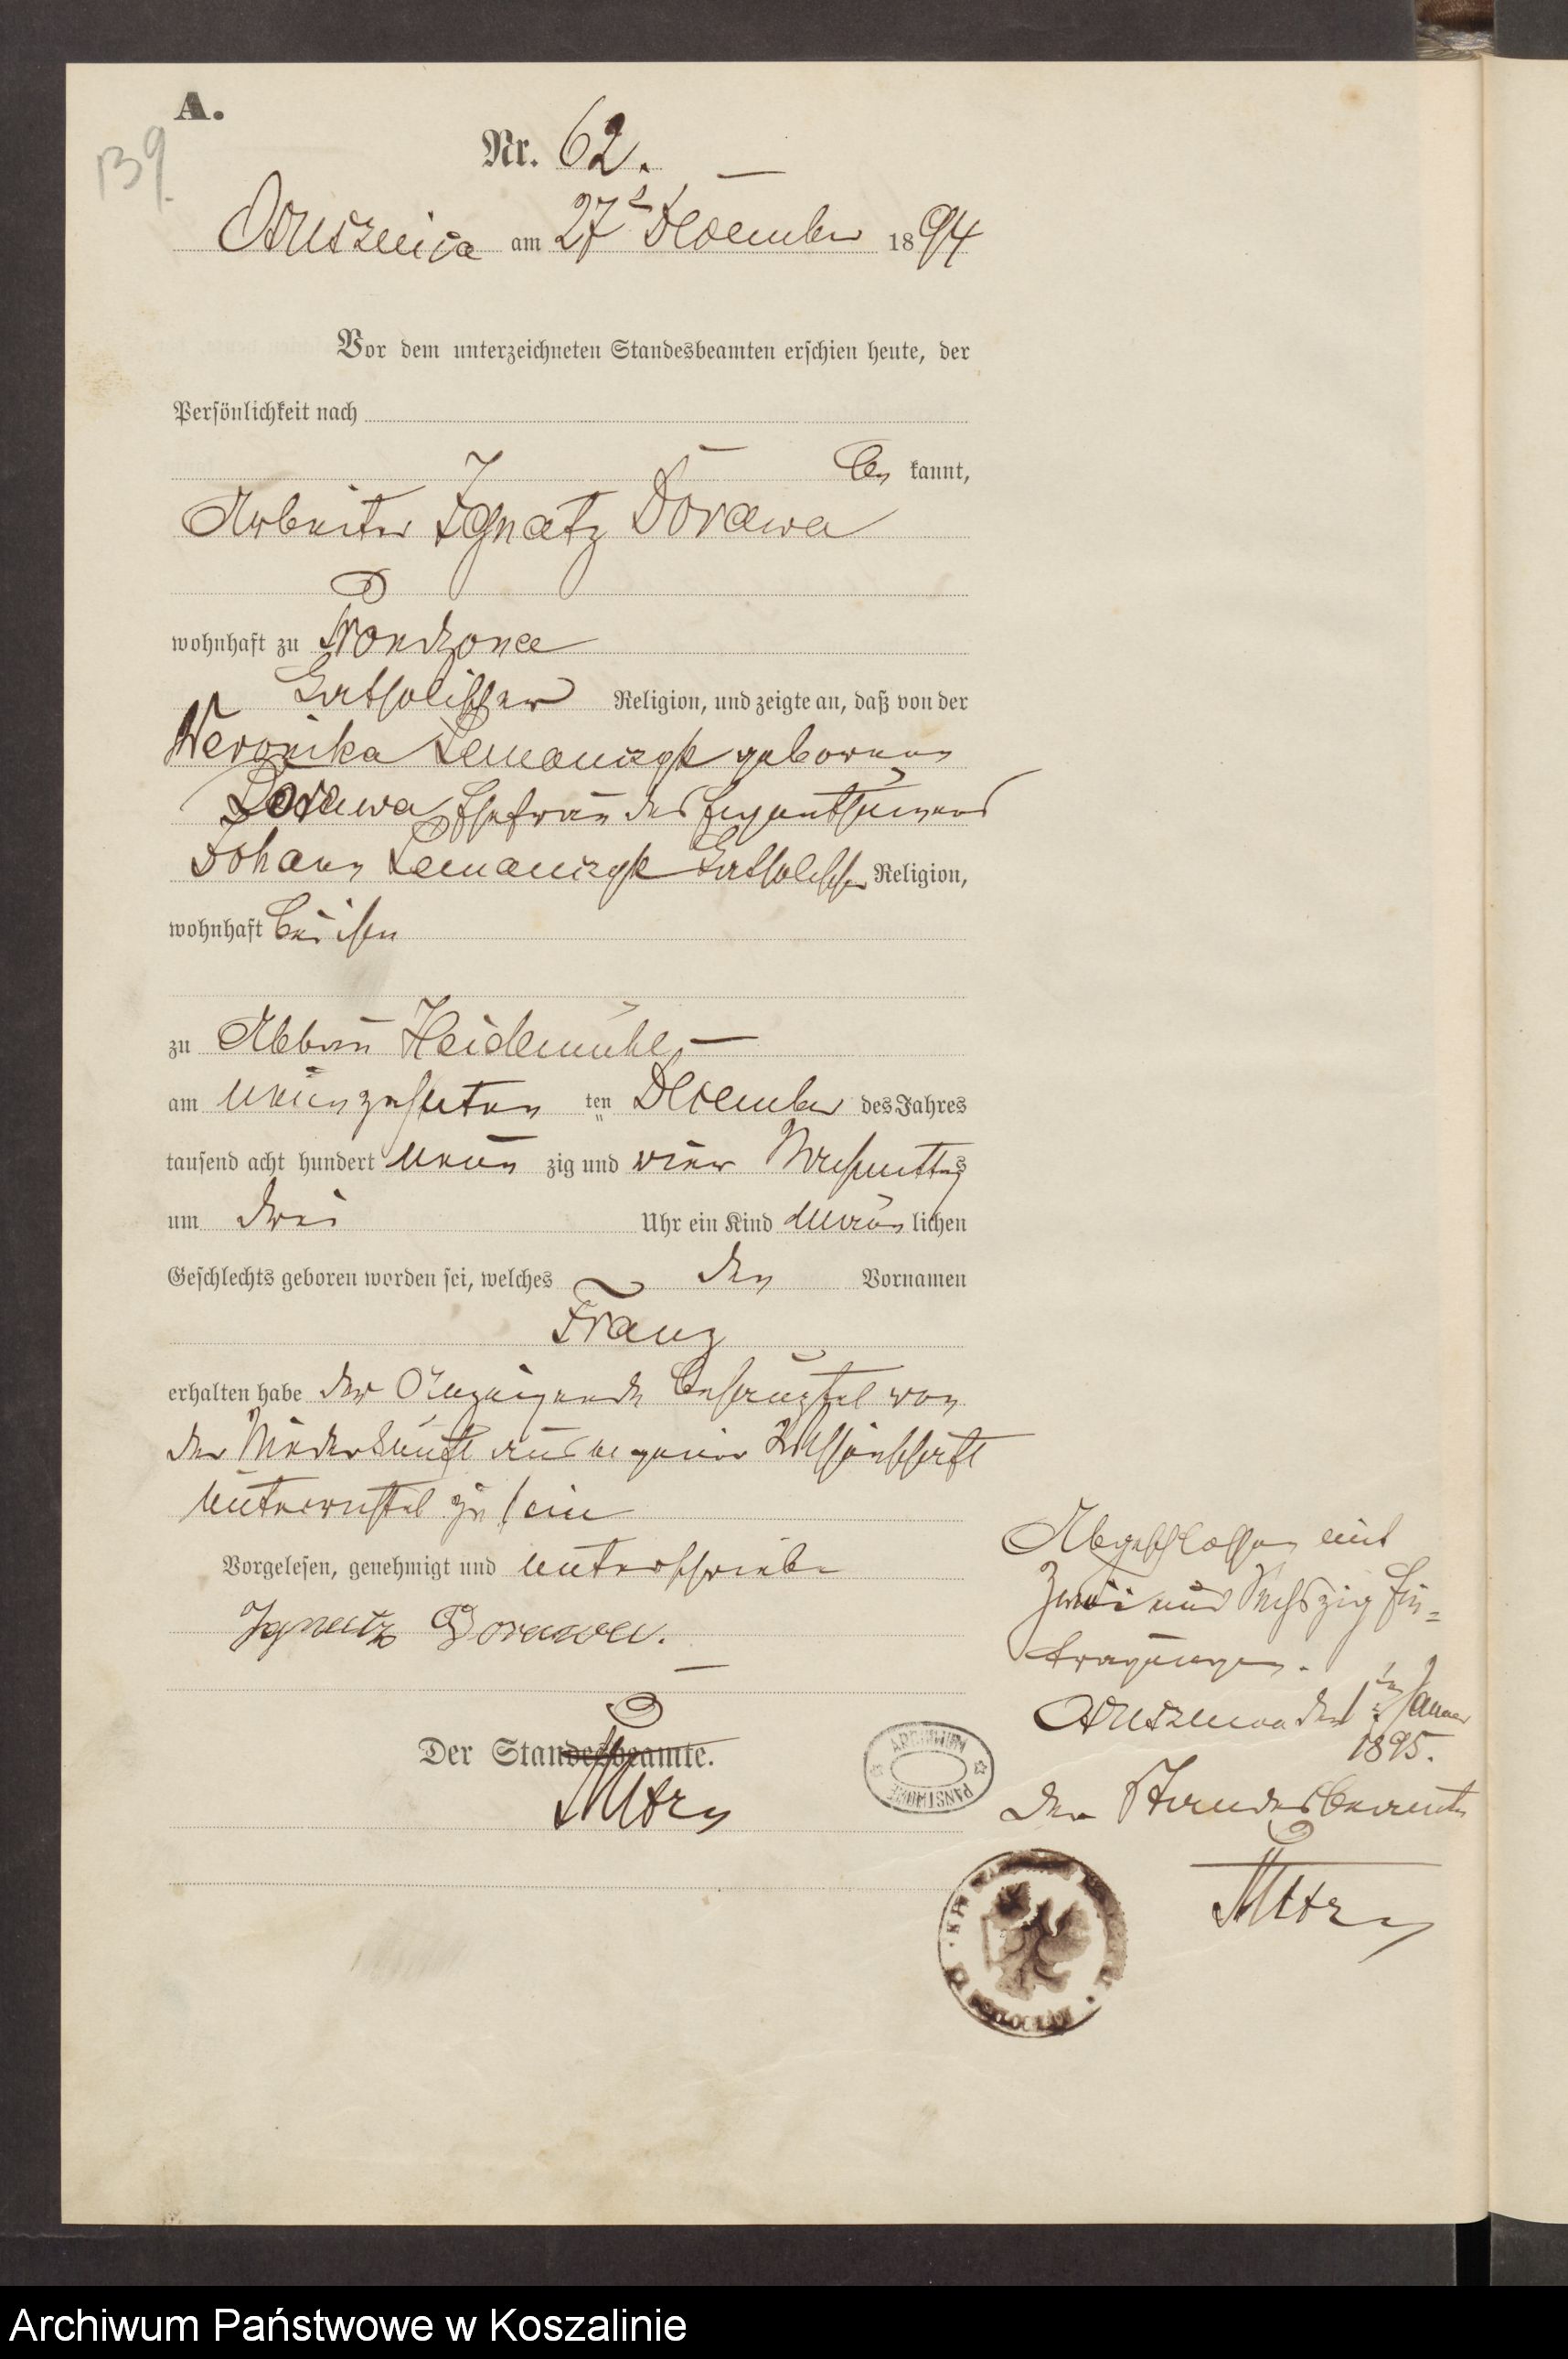 A.
139.
Nr. 62.
Oslusznica am 27t December 1894
Vor dem unterzeichneten Standesbeamten erschien heute, der
Persönlichkeit nach
be kannt,
Arbeiter Ignatz Dorawa
wohnhaft zu Prondzona
katholischer Religion, und zeigte an, daß von der
Veronika Lemanczyk geborenen
Dorawa, Ehefrau des Eigenthümers
Johann Lemanczyk katholischer Religion,
wohnhaft bei ihm
zu Abbau Heidemühl
am neunzehnten ten December des Jahres
tausend acht hundert neun zig und vier Nachmittags
um drei Uhr ein Kind männlichen
Geschlechts geboren worden sei, welches den Vornamen
Franz
erhalten habe der Anzeigende behauptet von
der Niederkunft aus eigener Wissenschaft
unterrichtet zu sein
Vorgelesen, genehmigt und unterschrieben
Ignatz Dorawa.
Der Standesbeamte.
Abgeschlossen mit
zwei und sechszig Ein-
tragungen.
den 1ten Januar
1895.
Der Standesbeamte
ARCHIWUM PAŃSTWOWE
Archiwum Państwowe w Koszalinie